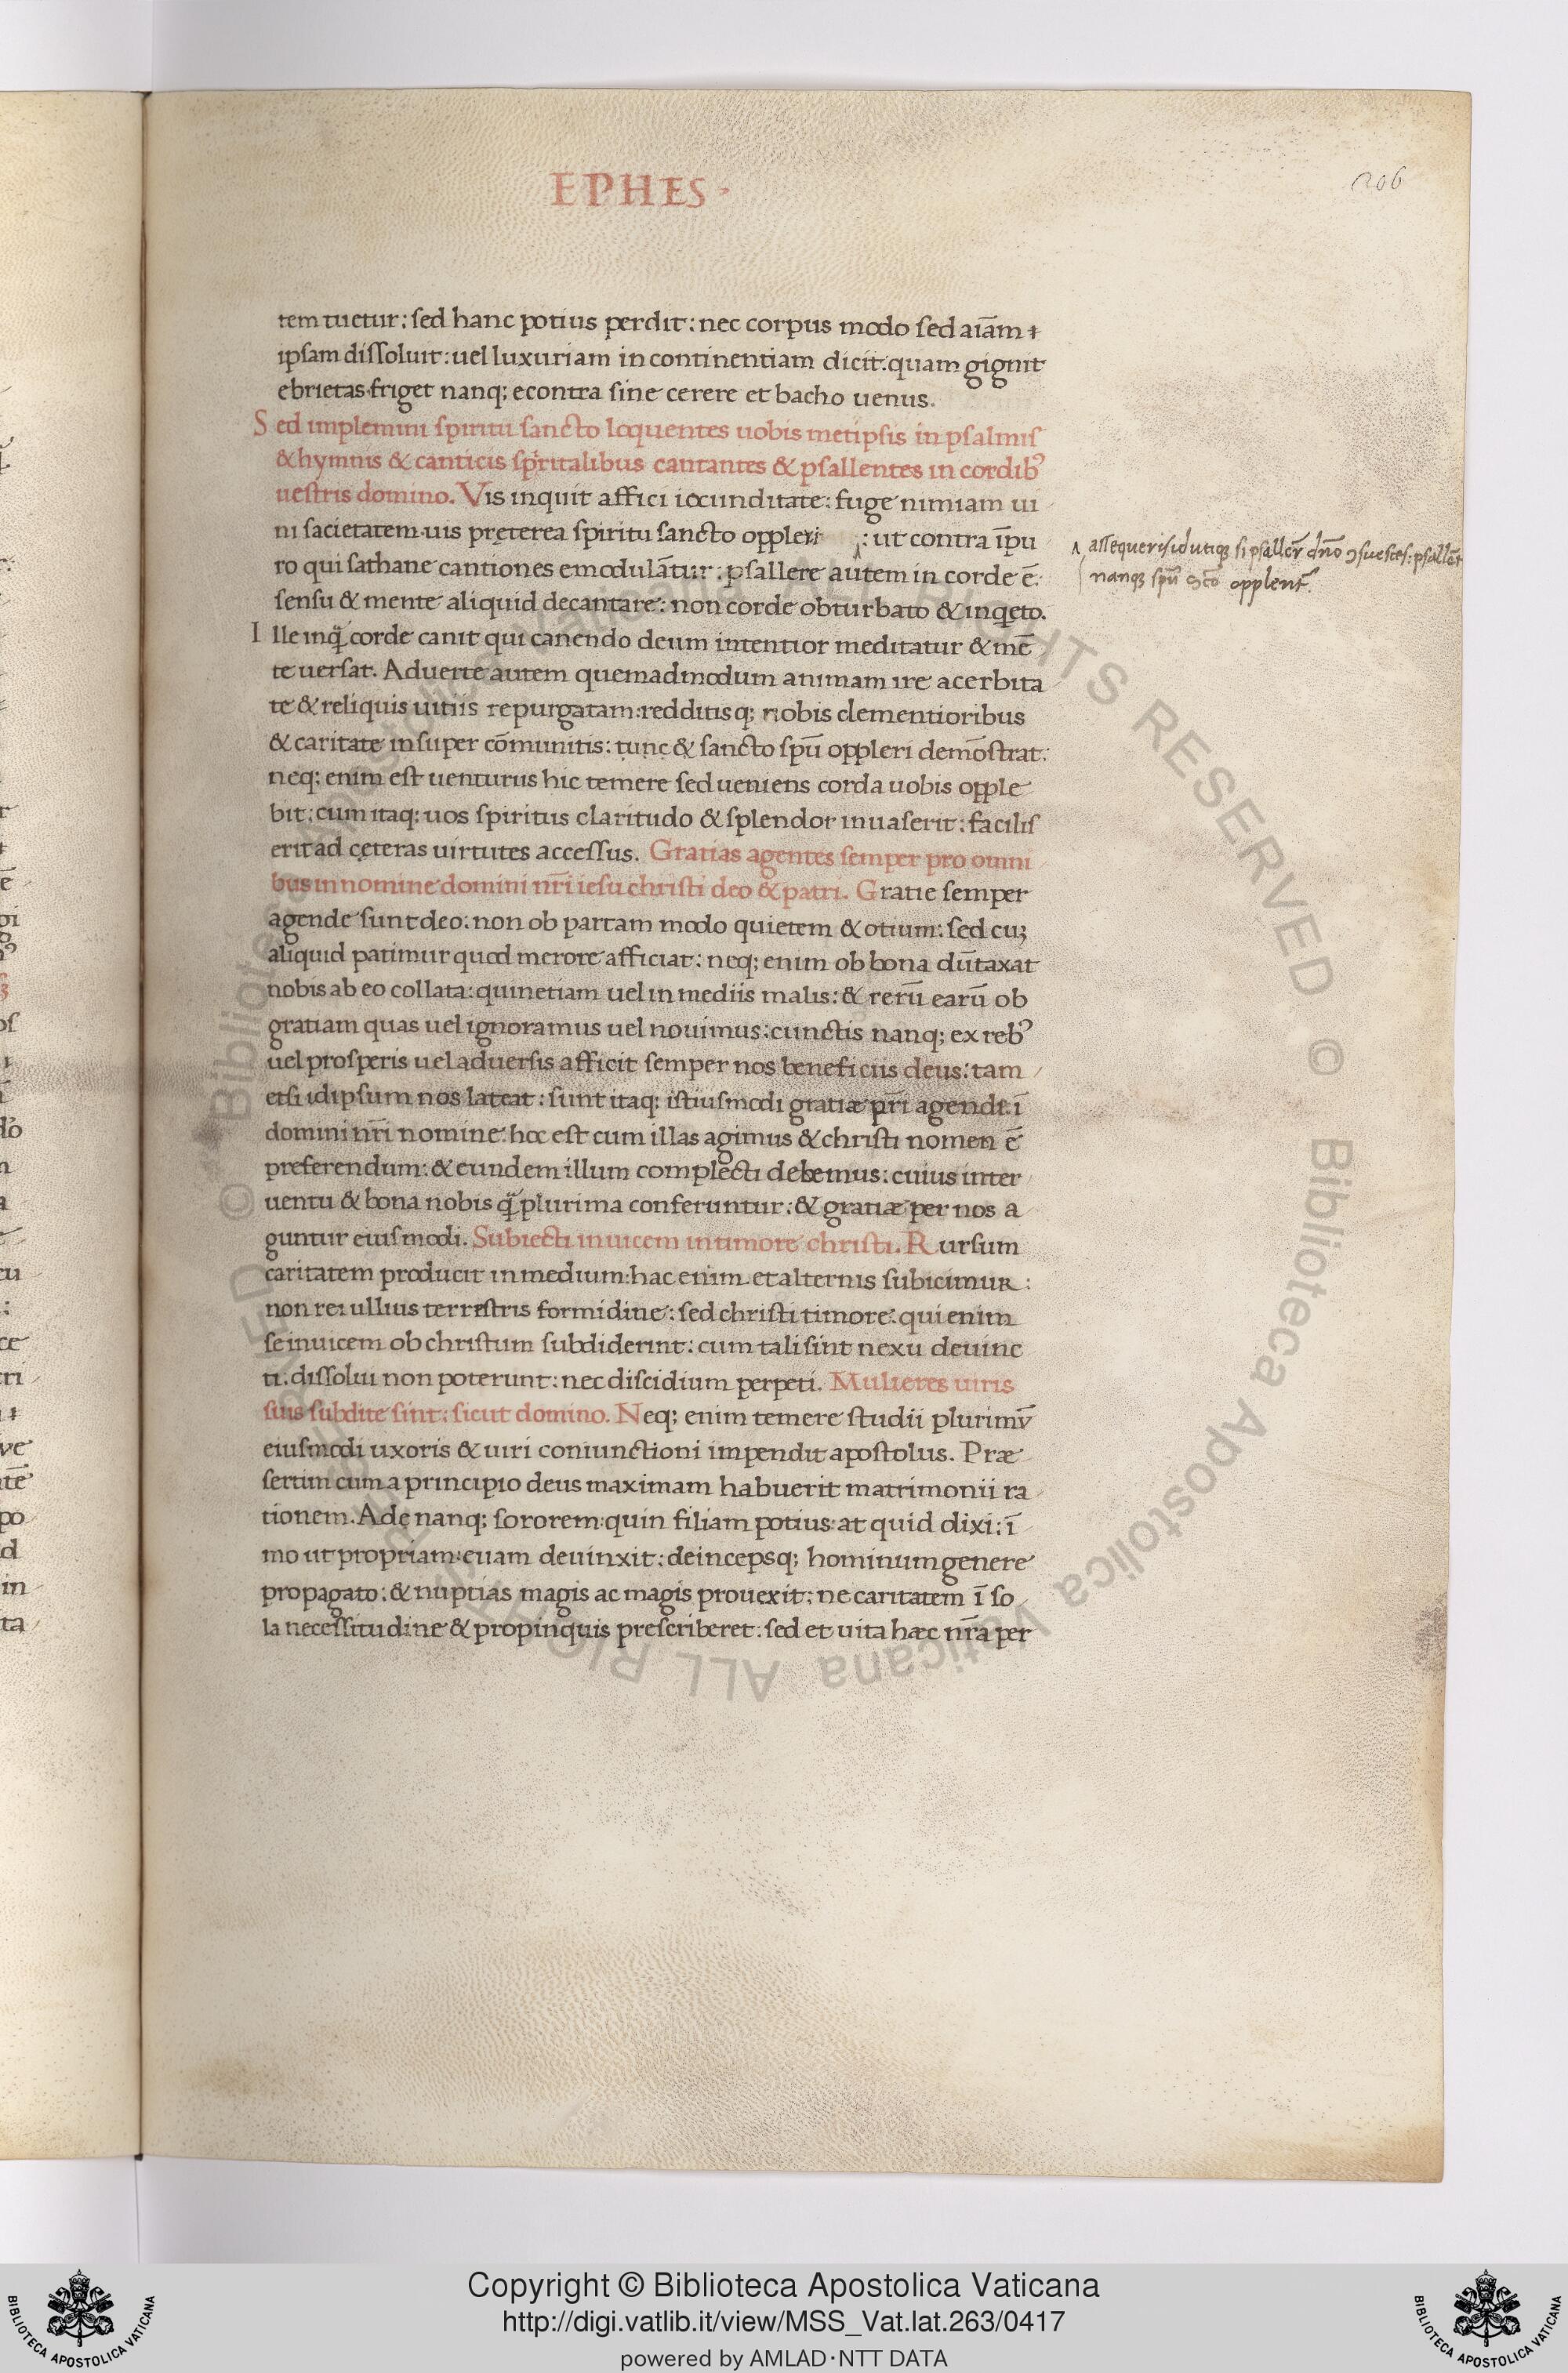 EPHES·
206
tem tuetur: sed hanc potius perdit: nec corpus modo sed aiãm &
ipsam dissoluit: uel luxuriam incontinentiam dicit: quam gignit
ebrietas· friget nanq; econtra sine cerere et bacho uenus.
Sed implemini spiritu sancto loquentes uobis metipsis in psalmis
& hymnis & canticis spiritalibus cantantes & psallentes in cordib⁹
uestris domino. Vis inquit affici iocunditate: fuge nimiam ui
ni sacietatem· uis pręterea spiritu sancto oppleri ʌ: ut contra ĩpu
ʌ assequeris id utiq; si psallere dño ɔsuesces: psallẽt
nanq; spũ sctõ opplent̃.
ro qui sathane cantiones emodulãtur: psallere autem in corde ẽ:
sensu & mente aliquid decantare: non corde obturbato & inqeto.
Ille inq̃ corde canit qui canendo deum intentior meditatur & mẽ
te uersat. Aduerte autem quemadmodum animam ire acerbita
te & reliquis uitiis repurgatam: redditisq; nobis clementioribus
& caritate insuper cõmunitis: tunc & sancto spũ oppleri demõstrat:
neq; enim est uenturus hic temere sed ueniens corda uobis opple
bit: cum itaq; uos spiritus claritudo & splendor inuaserit: facilis
erit ad cęteras uirtutes accessus. Gratias agentes semper pro omni
bus in nomine domini nr̃i iesu christi deo & patri. Gratie semper
agende sunt deo: non ob partam modo quietem & otium: sed cuȝ
aliquid patimur quod merore afficiat: neq; enim ob bona dũtaxat
nobis ab eo collata: quinetiam uel in mediis malis: & rerũ earũ ob
gratiam quas uel ignoramus uel nouimus: cunctis nanq; ex reb⁹
uel prosperis uel aduersis afficit semper nos beneficiis deus: tam
etsi id ipsum nos lateat: sunt itaq; istiusmodi gratiæ pr̃i agendę ĩ
domini nr̃i nomine: hoc est cum illas agimus & christi nomen ẽ
preferendum: & eundem illum complecti debemus: cuius inter
uentu & bona nobis q̃ plurima conferuntur: & gratiæ per nos a
guntur eiusmodi. Subiecti inuicem in timore christi. Rursum
caritatem producit in medium: hac enim et alternis subicimur:
non rei ullius terrestris formidine: sed christi timore: qui enim
se inuicem ob christum subdiderint: cum tali sint nexu deuinc
ti: dissolui non poterunt: nec discidium perpeti. Mulieres uiris
suis subdite sint: sicut domino. Neq; enim temere studii plurimũ
eiusmodi uxoris & uiri coniunctioni impendit apostolus. Præ
sertim cum a principio deus maximam habuerit matrimonii ra
tionem. Ade nanq; sororem: quin filiam potius: at quid dixi: ĩ
mo ut propriam: euam deuinxit: deincepsq; hominum genere
propagato: & nuptias magis ac magis prouexit: ne caritatem ĩ so
la necessitudine & propinquis prescriberet: sed et uita hæc nr̃a per
Copyright © Biblioteca Apostolica Vaticana
http://digi.vatlib.it/view/MSS_Vat.lat.263/0417
powered by AMLAD·NTT DATA